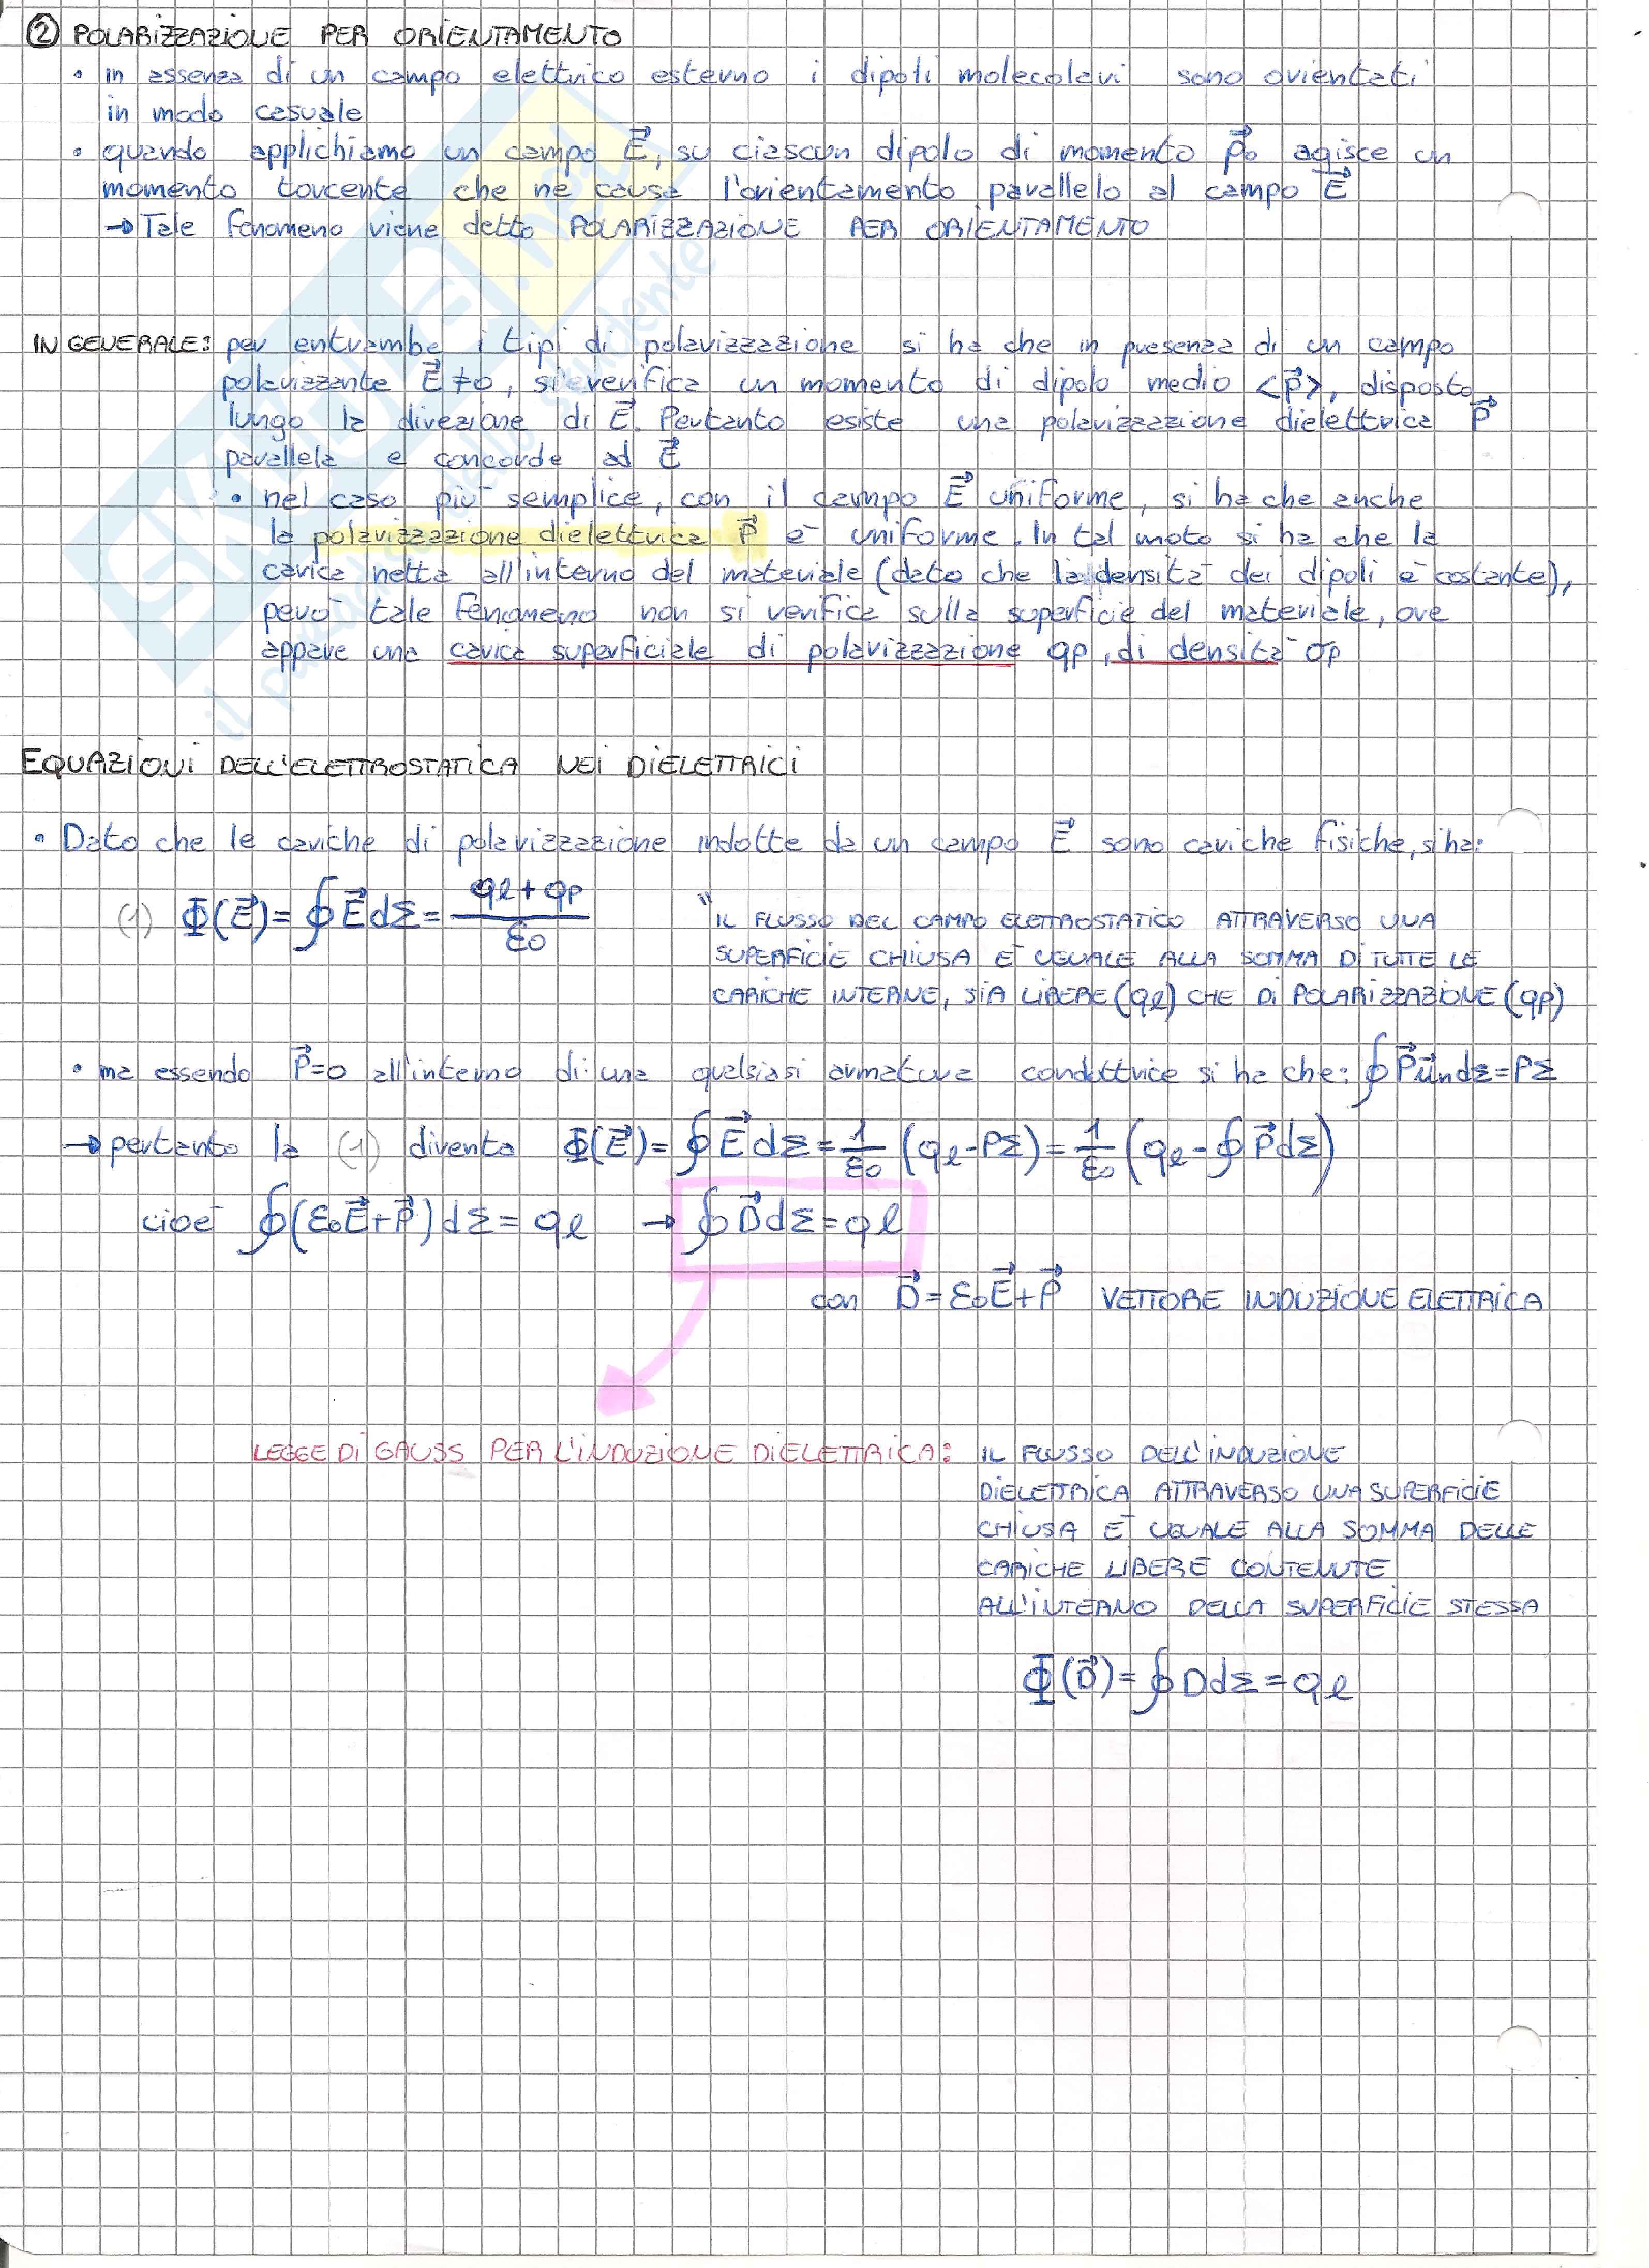 ② POLARIZZAZIONE PER ORIENTAMENTO
• in assenza di un campo elettrico esterno i dipoli molecolari sono orientati
in modo casuale
• quando applichiamo un campo E⃗, su ciascun dipolo di momento p⃗₀ agisce un
momento torcente che ne causa l'orientamento parallelo al campo E⃗
→ Tale fenomeno viene detto POLARIZZAZIONE PER ORIENTAMENTO
IN GENERALE: per entrambe i tipi di polarizzazione si ha che in presenza di un campo
polarizzante E⃗≠0, si verifica un momento di dipolo medio <p⃗>, disposto
lungo la direzione di E⃗. Pertanto esiste una polarizzazione dielettrica P⃗
parallela e concorde ad E⃗
• nel caso più semplice, con il campo E⃗ uniforme, si ha che anche
la polarizzazione dielettrica P⃗ è uniforme. In tal moto si ha che la
carica netta all'interno del materiale (dato che la densità dei dipoli è costante),
però tale fenomeno non si verifica sulla superficie del materiale, ove
appare una carica superficiale di polarizzazione qp, di densità σp
EQUAZIONI DELL'ELETTROSTATICA NEI DIELETTRICI
• Dato che le cariche di polarizzazione indotte da un campo E⃗ sono cariche fisiche, si ha:
(1) Φ(E⃗)= ∮E⃗dΣ= (qℓ+qp)/ε₀
"IL FLUSSO DEL CAMPO ELETTROSTATICO ATTRAVERSO UNA
SUPERFICIE CHIUSA È UGUALE ALLA SOMMA DI TUTTE LE
CARICHE INTERNE, SIA LIBERE (qℓ) CHE DI POLARIZZAZIONE (qp)
• ma essendo P⃗=0 all'interno di una qualsiasi armatura conduttrice si ha che: ∮P⃗u⃗ndΣ=PΣ
→ pertanto la (1) diventa Φ(E⃗)= ∮E⃗dΣ= 1/ε₀ (qℓ-PΣ)= 1/ε₀ (qℓ-∮P⃗dΣ)
cioè ∮(ε₀E⃗+P⃗)dΣ= qℓ → ∮D⃗dΣ=qℓ
con D⃗=ε₀E⃗+P⃗ VETTORE INDUZIONE ELETTRICA
LEGGE DI GAUSS PER L'INDUZIONE DIELETTRICA: IL FLUSSO DELL'INDUZIONE
DIELETTRICA ATTRAVERSO UNA SUPERFICIE
CHIUSA È UGUALE ALLA SOMMA DELLE
CARICHE LIBERE CONTENUTE
ALL'INTERNO DELLA SUPERFICIE STESSA
Φ(D⃗)= ∮DdΣ=qℓ
SKUOLA.net
il paradiso dello studente